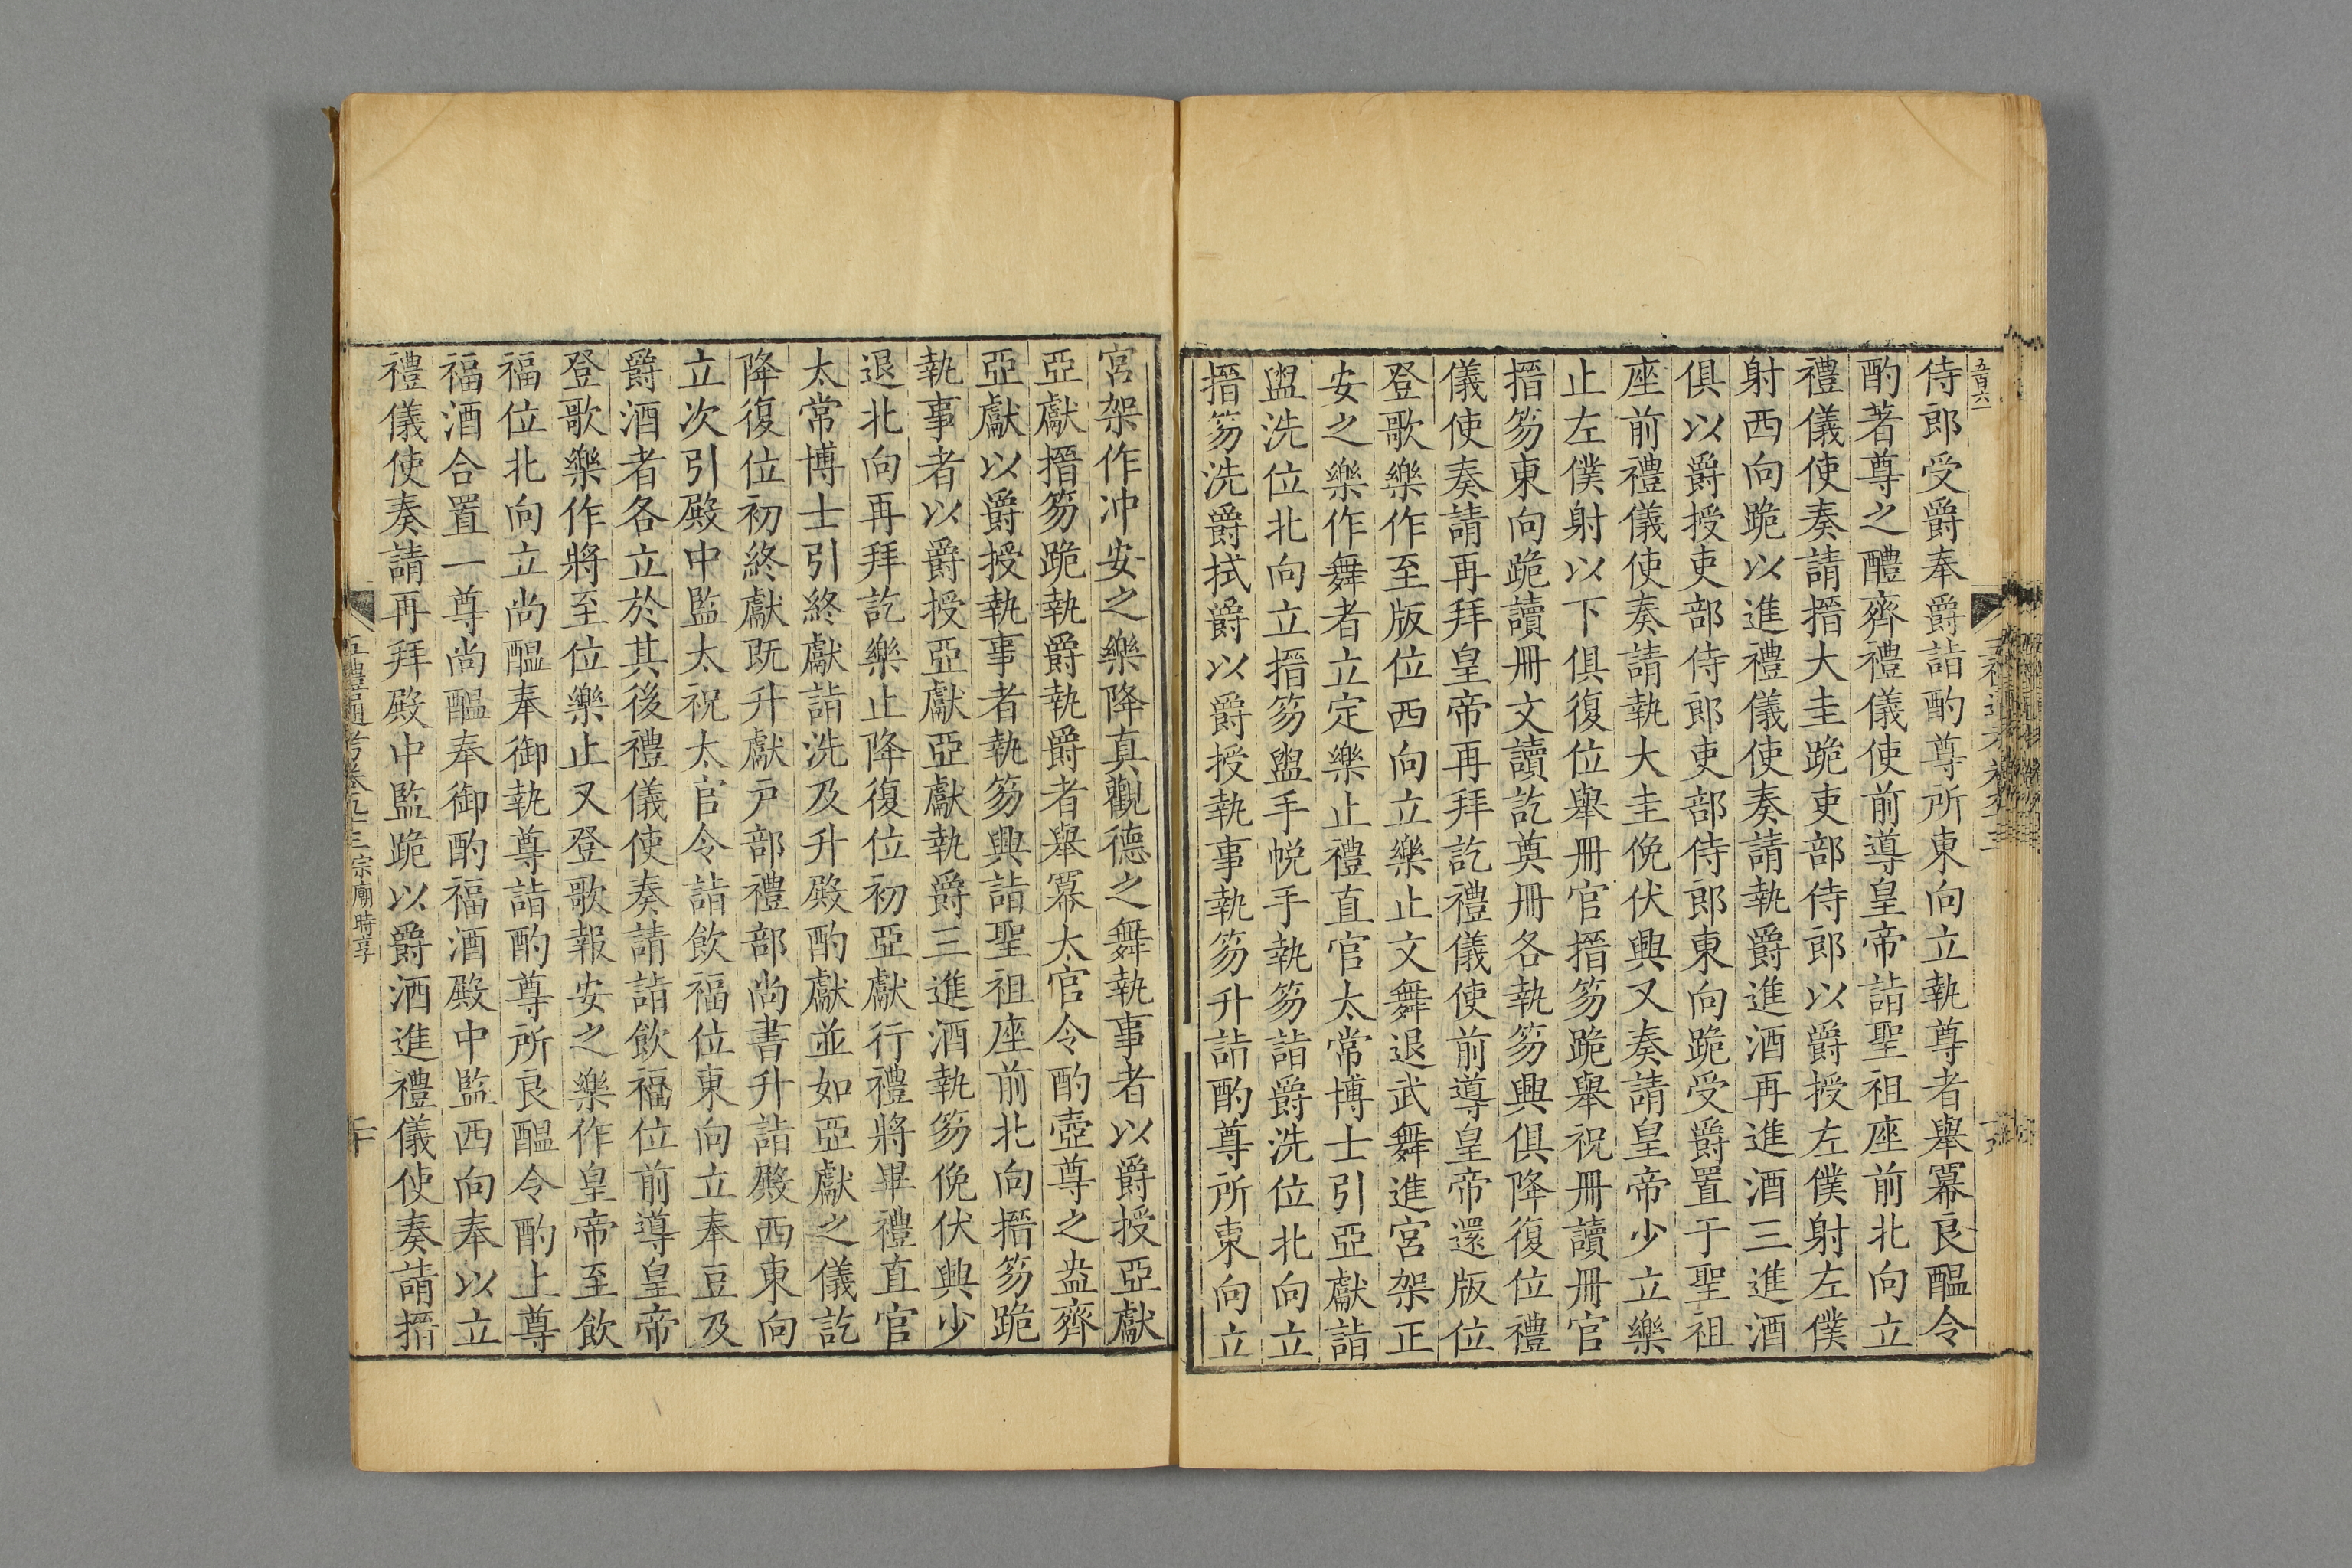 五百六
侍郎受爵奉爵詣酌尊所東向立執尊者舉冪良醞令
酌著尊之醴齊禮儀使前導皇帝詣聖祖座前北向立
禮儀使奏請搢大圭跪吏部侍郎以爵授左僕射左僕
射西向跪以進禮儀使奏請執爵進酒再進酒三進酒
俱以爵授吏部侍郎吏部侍郎東向跪受爵置于聖祖
座前禮儀使奏請執大圭俛伏興又奏請皇帝少立樂
止左僕射以下俱復位舉冊官搢笏跪舉祝冊讀冊官
搢笏東向跪讀冊文讀訖奠冊各執笏興俱降復位禮
儀使奏請再拜皇帝再拜訖禮儀使前導皇帝還版位
登歌樂作至版位西向立樂止文舞退武舞進宮架正
安之樂作舞者立定樂止禮直官太常博士引亞獻詣
盥洗位北向立搢笏盥手帨手執笏詣爵洗位北向立
搢笏洗爵拭爵以爵授執事執笏升詣酌尊所東向立
宮架作冲安之樂降真觀德之舞執事者以爵授亞獻
亞獻搢笏跪執爵執爵者舉冪太官令酌壺尊之盎齊
亞獻以爵授執事者執笏興詣聖祖座前北向搢笏跪
執事者以爵授亞獻亞獻執爵三進酒執笏俛伏興少
退北向再拜訖樂止降復位初亞獻行禮將畢禮直官
太常博士引終獻詣洗及升殿酌獻並如亞獻之儀訖
降復位初終獻既升獻戸部禮部尚書升詣殿西東向
立次引殿中監太祝太官令詣飲福位東向立奉豆及
爵酒者各立於其後禮儀使奏請詣飲福位前導皇帝
登歌樂作將至位樂止又登歌報安之樂作皇帝至飲
福位北向立尚醞奉御執尊詣酌尊所良醞令酌上尊
福酒合置一尊尚醞奉御酌福酒殿中監西向奉以立
禮儀使奏請再拜殿中監跪以爵酒進禮儀使奏請搢
五禮通考卷九十三宗廟時享